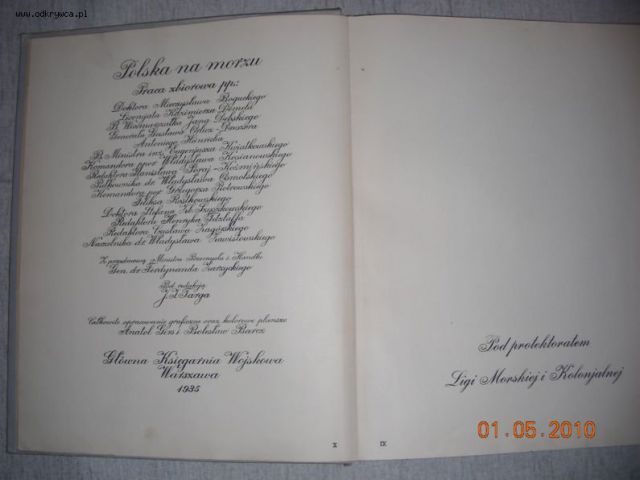 www.odkrywca.pl
Polska na morzu
Praca zbiorowa pp:
Doktora Mieczysława Boguckiego
Licencjata Kazimierza Demela
B. Wicemarszałka Jana Dębskiego
Generała Gustawa Orlicz-Dreszera
Antoniego Heinricha
B. Ministra inż. Eugenjusza Kwiatkowskiego
Komandora ppor. Władysława Kosianowskiego
Redaktora Stanisława Poraj-Koźmińskiego
Pułkownika dr. Władysława Osmolskiego
Komandora por. Grzegorza Piotrowskiego
Feliksa Rostkowskiego
Doktora Stefana
Redaktora Henryka Tetzlaffa
Redaktora Czesława Zagórskiego
Naczelnika dr. Władysława Zawistowskiego
Z przedmową Ministra Przemysłu i Handlu
Gen. dr. Ferdynanda Zarzyckiego
Pod redakcją
J. I. Targa
Całkowite opracowanie graficzne oraz kolorowe plansze
Anatol Girs i Bolesław Barcz
Główna Księgarnia Wojskowa
Warszawa
1935
X
Pod protektoratem
Ligi Morskiej i Kolonjalnej
IX
01.05.2010